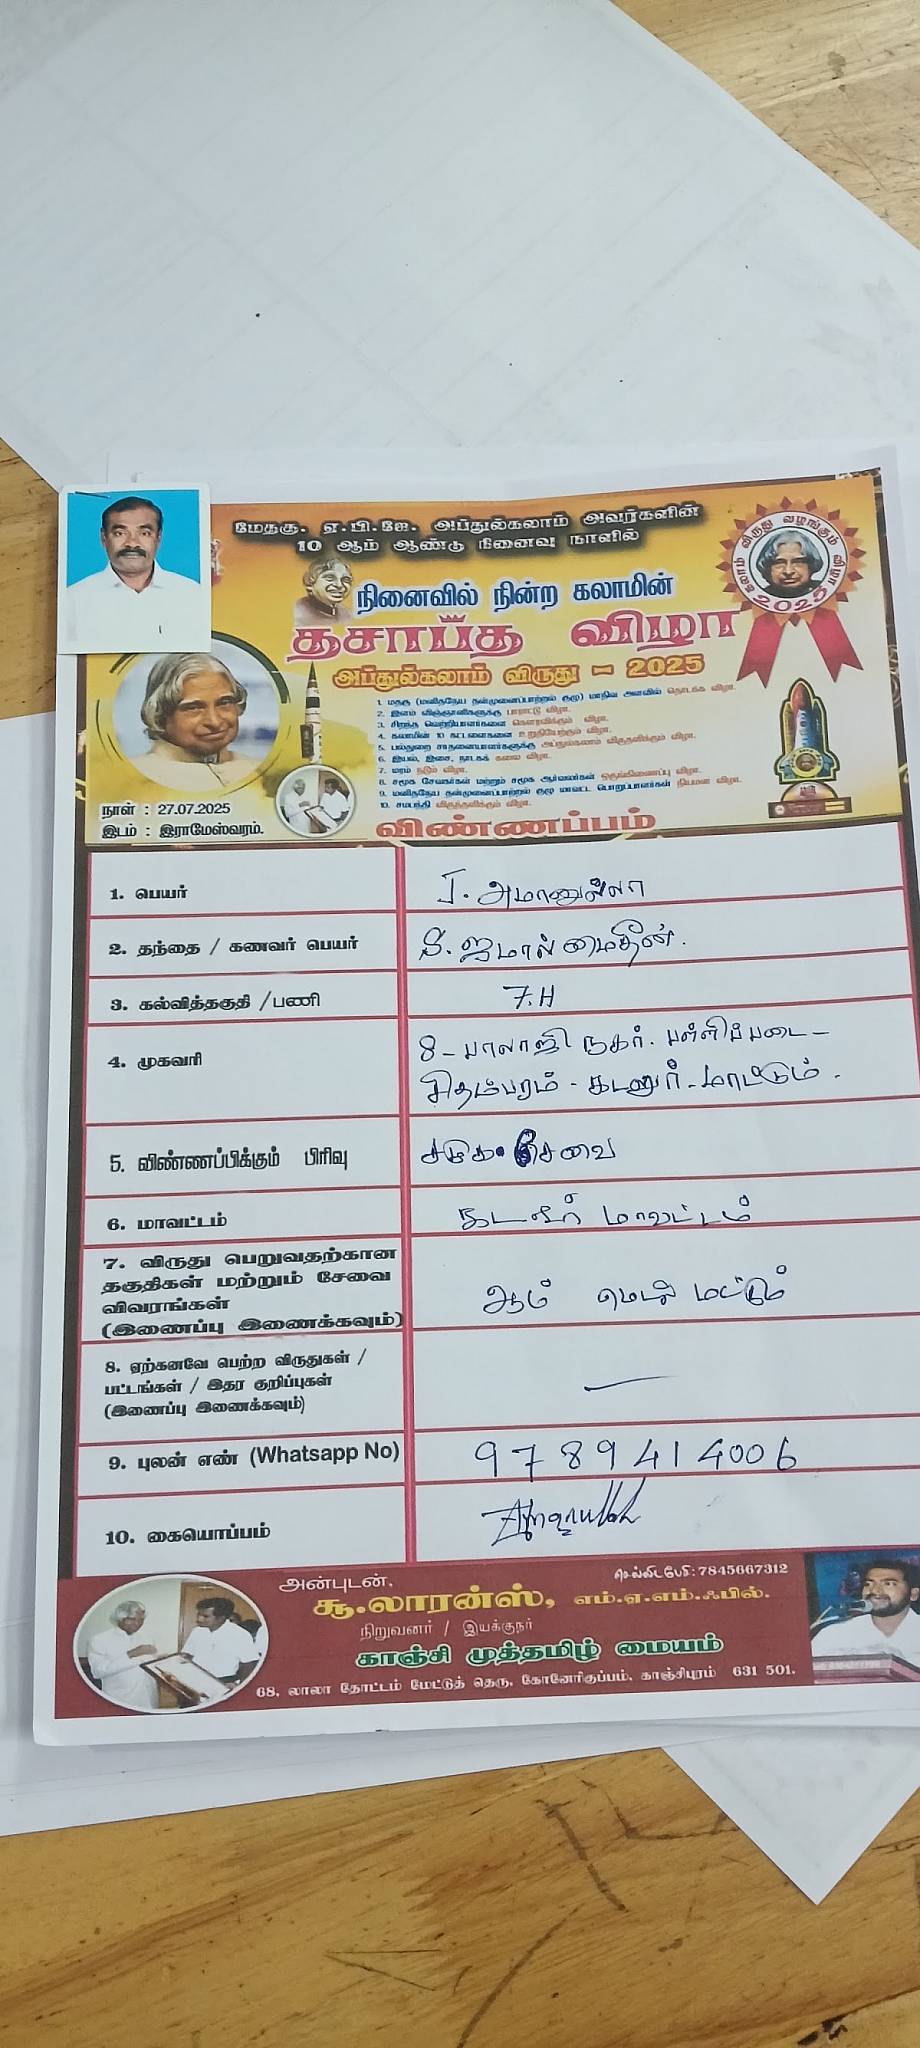 மேதகு. ஏ.பி.ஜே. அப்துல்கலாம் அவர்களின்
10 ஆம் ஆண்டு நினைவு நாளில்
நினைவில் நின்ற கலாமின்
தசாப்த விழா
அப்துல்கலாம் விருது – 2025
கலாம் விருது வழங்கும் விழா
2025
1. மதகு (மனிதநேய தன்முனைப்பாற்றல் குழு) மாநில அளவில் தொடக்க விழா.
2. இளம் விஞ்ஞானிகளுக்கு பாராட்டு விழா.
3. சிறந்த வெற்றியாளர்களை கௌரவிக்கும் விழா.
4. கலாமின் 10 கட்டளைகளை உறுதியேற்கும் விழா.
5. பல்துறை சாதனையாளர்களுக்கு அப்துல்கலாம் விருதளிக்கும் விழா.
6. இயல், இசை, நாடகக் கலை விழா.
7. மரம் நடும் விழா.
8. சமூக சேவகர்கள் மற்றும் சமூக ஆர்வலர்கள் ஒருங்கிணைப்பு விழா.
9. மனிதநேய தன்முனைப்பாற்றல் குழு மாவட்ட பொறுப்பாளர்கள் நியமன விழா.
10. சமபந்தி விருந்தளிக்கும் விழா.
நாள் : 27.07.2025
இடம் : இராமேஸ்வரம்.
விண்ணப்பம்
1. பெயர் J. அமானுல்லா
2. தந்தை / கணவர் பெயர் S. ஜமால் மைதீன்.
3. கல்வித்தகுதி / பணி 7.H
4. முகவரி 8 - பாலாஜி நகர். பள்ளிப்படை -
சிதம்பரம் - கடலூர் - மாவட்டம்.
5. விண்ணப்பிக்கும் பிரிவு சமூக சேவை
6. மாவட்டம் கடலூர் மாவட்டம்
7. விருது பெறுவதற்கான
தகுதிகள் மற்றும் சேவை
விவரங்கள்
(இணைப்பு இணைக்கவும்) ஆம் மெடல் மட்டும்
8. ஏற்கனவே பெற்ற விருதுகள் /
பட்டங்கள் / இதர குறிப்புகள்
(இணைப்பு இணைக்கவும்) —
9. புலன் எண் (Whatsapp No) 9789414006
10. கையொப்பம்
அன்புடன்,
செல்லிடபேசி:7845667312
சூ.லாரன்ஸ், எம்.ஏ.எம்.ஃபில்.
நிறுவனர் / இயக்குநர்
காஞ்சி முத்தமிழ் மையம்
68, லாலா தோட்டம் மேட்டுத் தெரு, கோனேரிகுப்பம், காஞ்சிபுரம் 631 501.